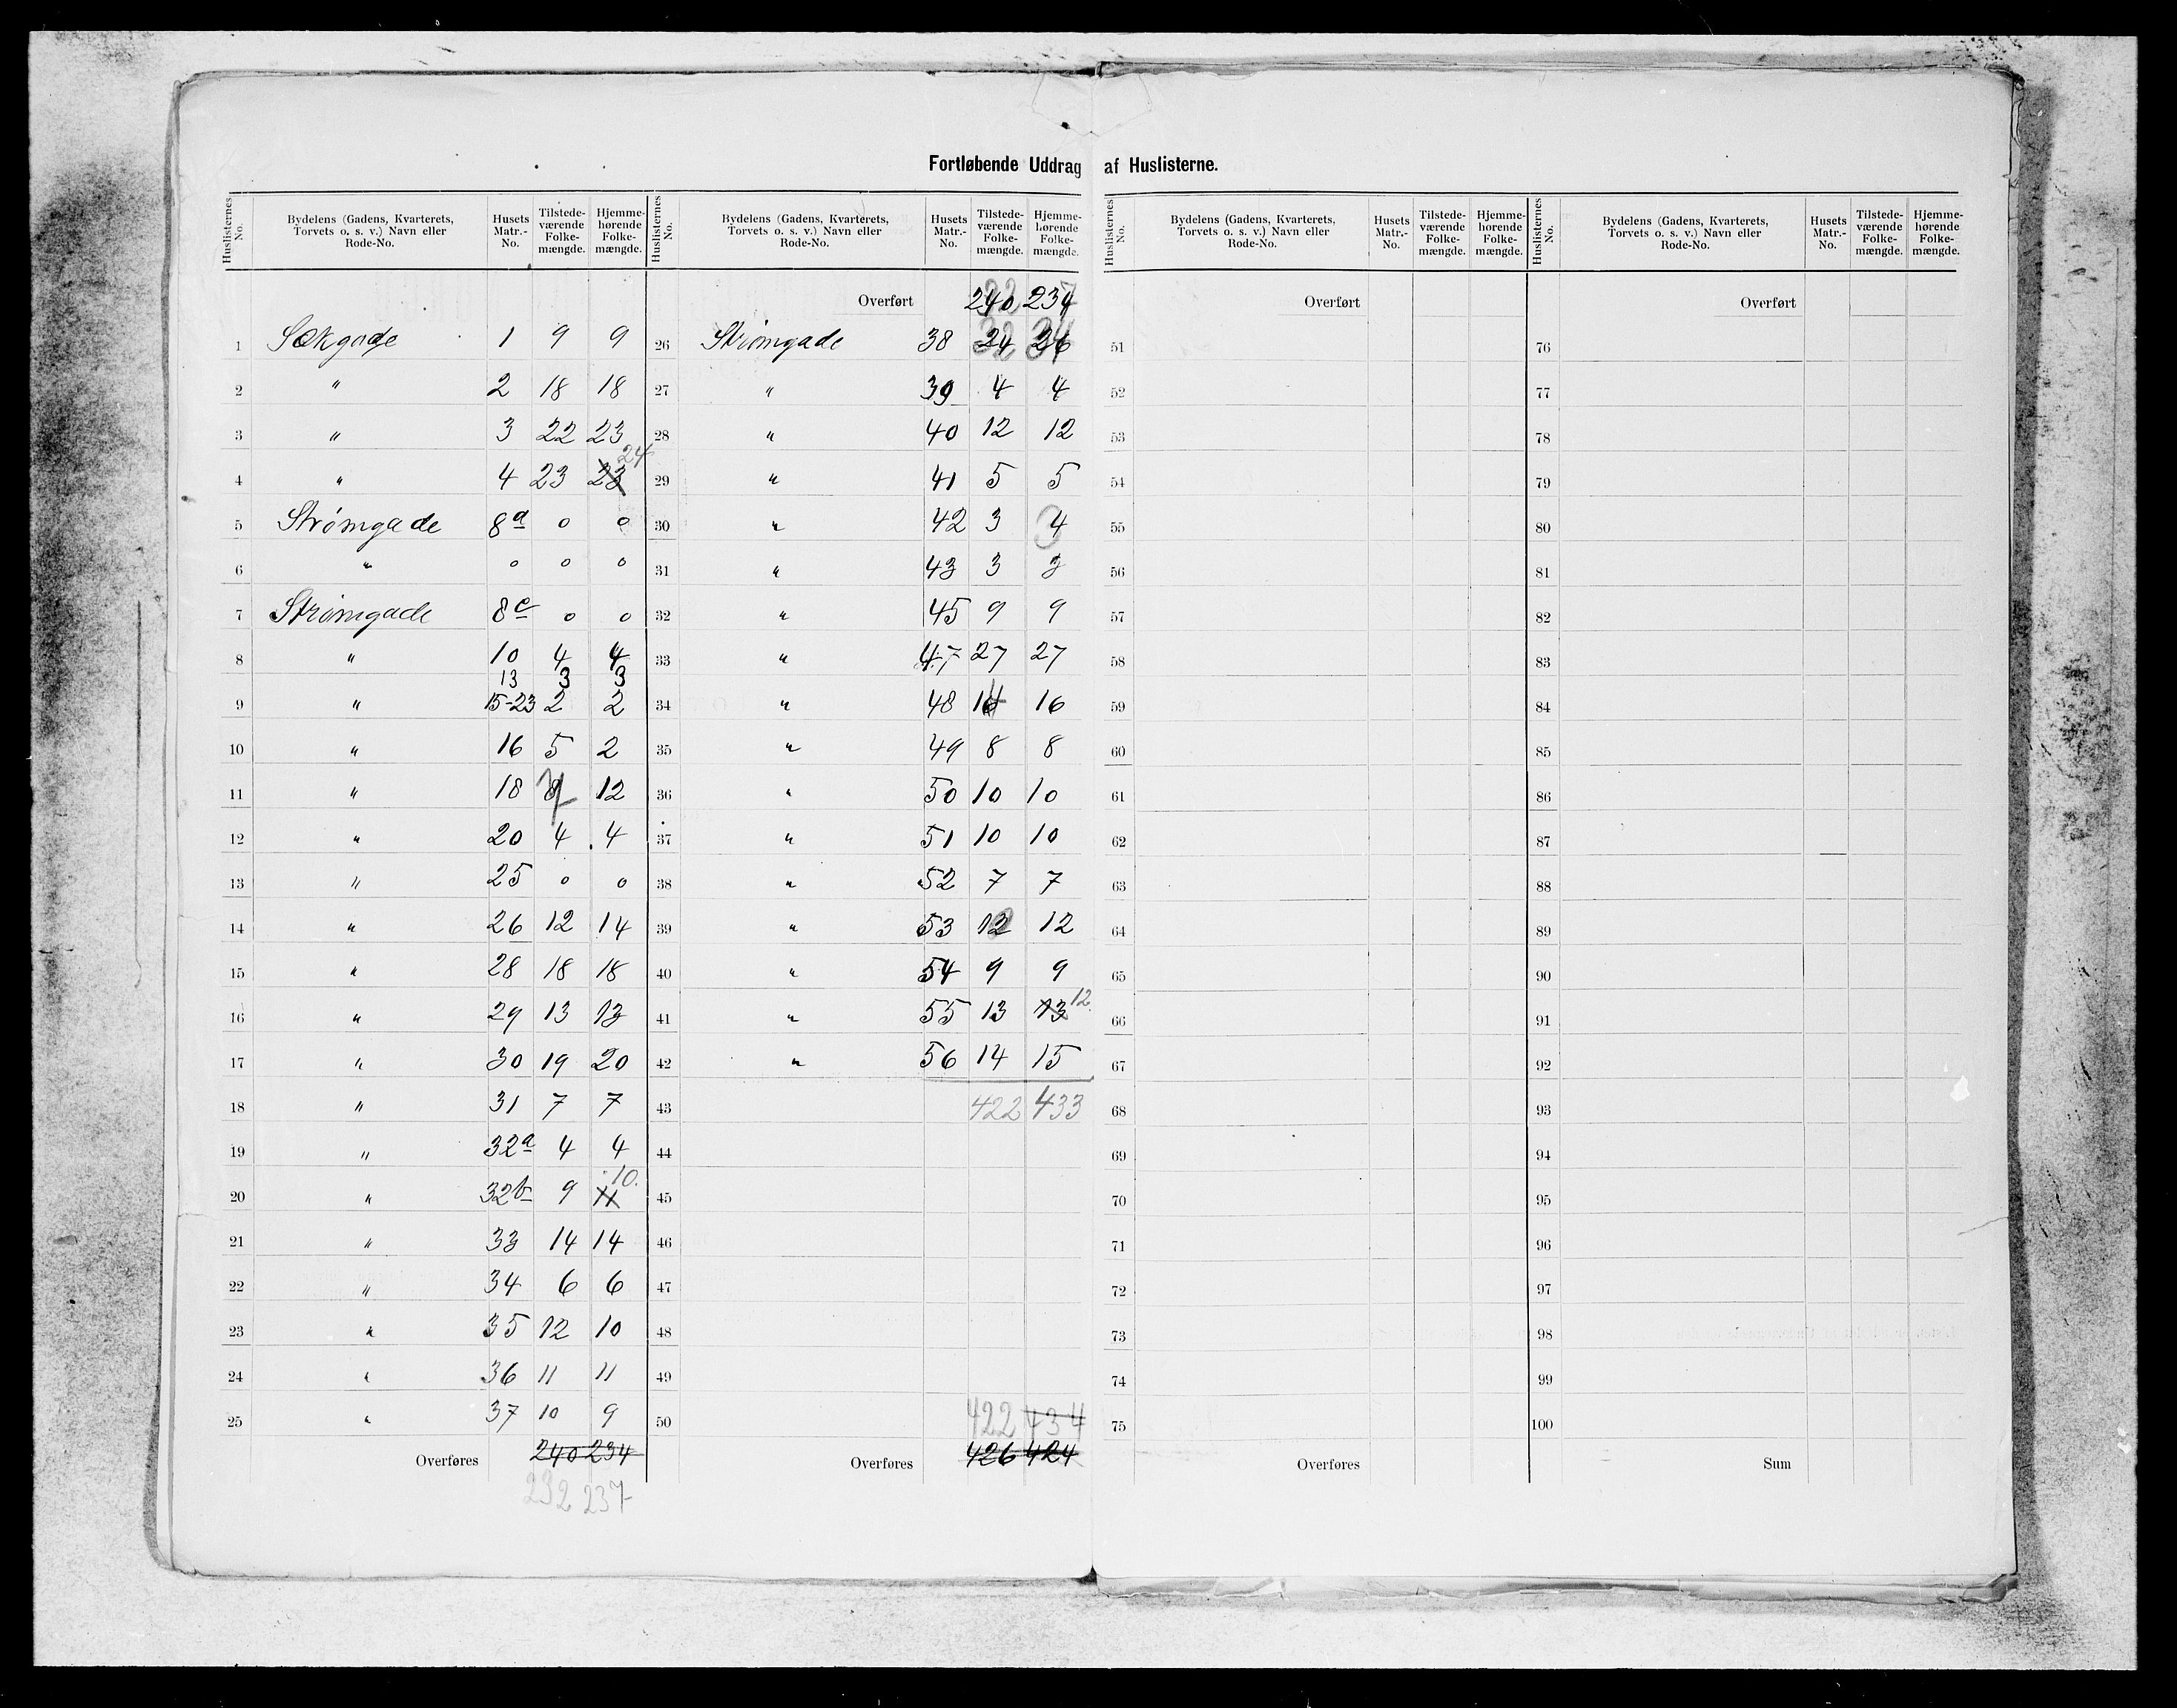 Fortløbende Uddrag af Huslisterne.
Huslisternes No. | Bydelens (Gadens, Kvarterets, Torvets o. s. v.) Navn eller Rode-No. | Husets Matr.-No. | Tilstede-værende Folke-mængde. | Hjemme-hørende Folke-mængde.
1 Sækgade 1 9 9
2 " 2 18 18
3 " 3 22 23
4 " 4 23 23 24
5 Strømgade 8a 0 0
6 " 0 0 0
7 Strømgade 8c 0 0
8 " 10 4 4
13 3 3
9 " 15-23 2 2
10 " 16 5 2
11 " 18 12
12 " 20 4 4
13 " 25 0 0
14 " 26 12 14
15 " 28 18 18
16 " 29 13 13
17 " 30 19 20
18 " 31 7 7
19 " 32a 4 4
20 " 32b 9 11 10.
21 " 33 14 14
22 " 34 6 6
23 " 35 12 10
24 " 36 11 11
25 " 37 10 9
Overføres 240 234
232 237
Huslisternes No. | Bydelens (Gadens, Kvarterets, Torvets o. s. v.) Navn eller Rode-No. | Husets Matr.-No. | Tilstede-værende Folke-mængde. | Hjemme-hørende Folke-mængde.
Overført 240 234
26 Strømgade 38 24 26
27 " 39 4 4
28 " 40 12 12
29 " 41 5 5
30 " 42 3 4
31 " 43 3 3
32 " 45 9 9
33 " 47 27 27
34 " 48 16 16
35 " 49 8 8
36 " 50 10 10
37 " 51 10 10
38 " 52 7 7
39 " 53 12 12
40 " 54 9 9
41 " 55 13 13 12
42 " 56 14 15
43 422 433
44
45
46
47
48
49
50 422 434
Overføres 426 424
Huslisternes No. | Bydelens (Gadens, Kvarterets, Torvets o. s. v.) Navn eller Rode-No. | Husets Matr.-No. | Tilstede-værende Folke-mængde. | Hjemme-hørende Folke-mængde.
Overført
51
52
53
54
55
56
57
58
59
60
61
62
63
64
65
66
67
68
69
70
71
72
73
74
75
Overføres
Huslisternes No. | Bydelens (Gadens, Kvarterets, Torvets o. s. v.) Navn eller Rode-No. | Husets Matr.-No. | Tilstede-værende Folke-mængde. | Hjemme-hørende Folke-mængde.
Overført
76
77
78
79
80
81
82
83
84
85
86
87
88
89
90
91
92
93
94
95
96
97
98
99
100
Sum